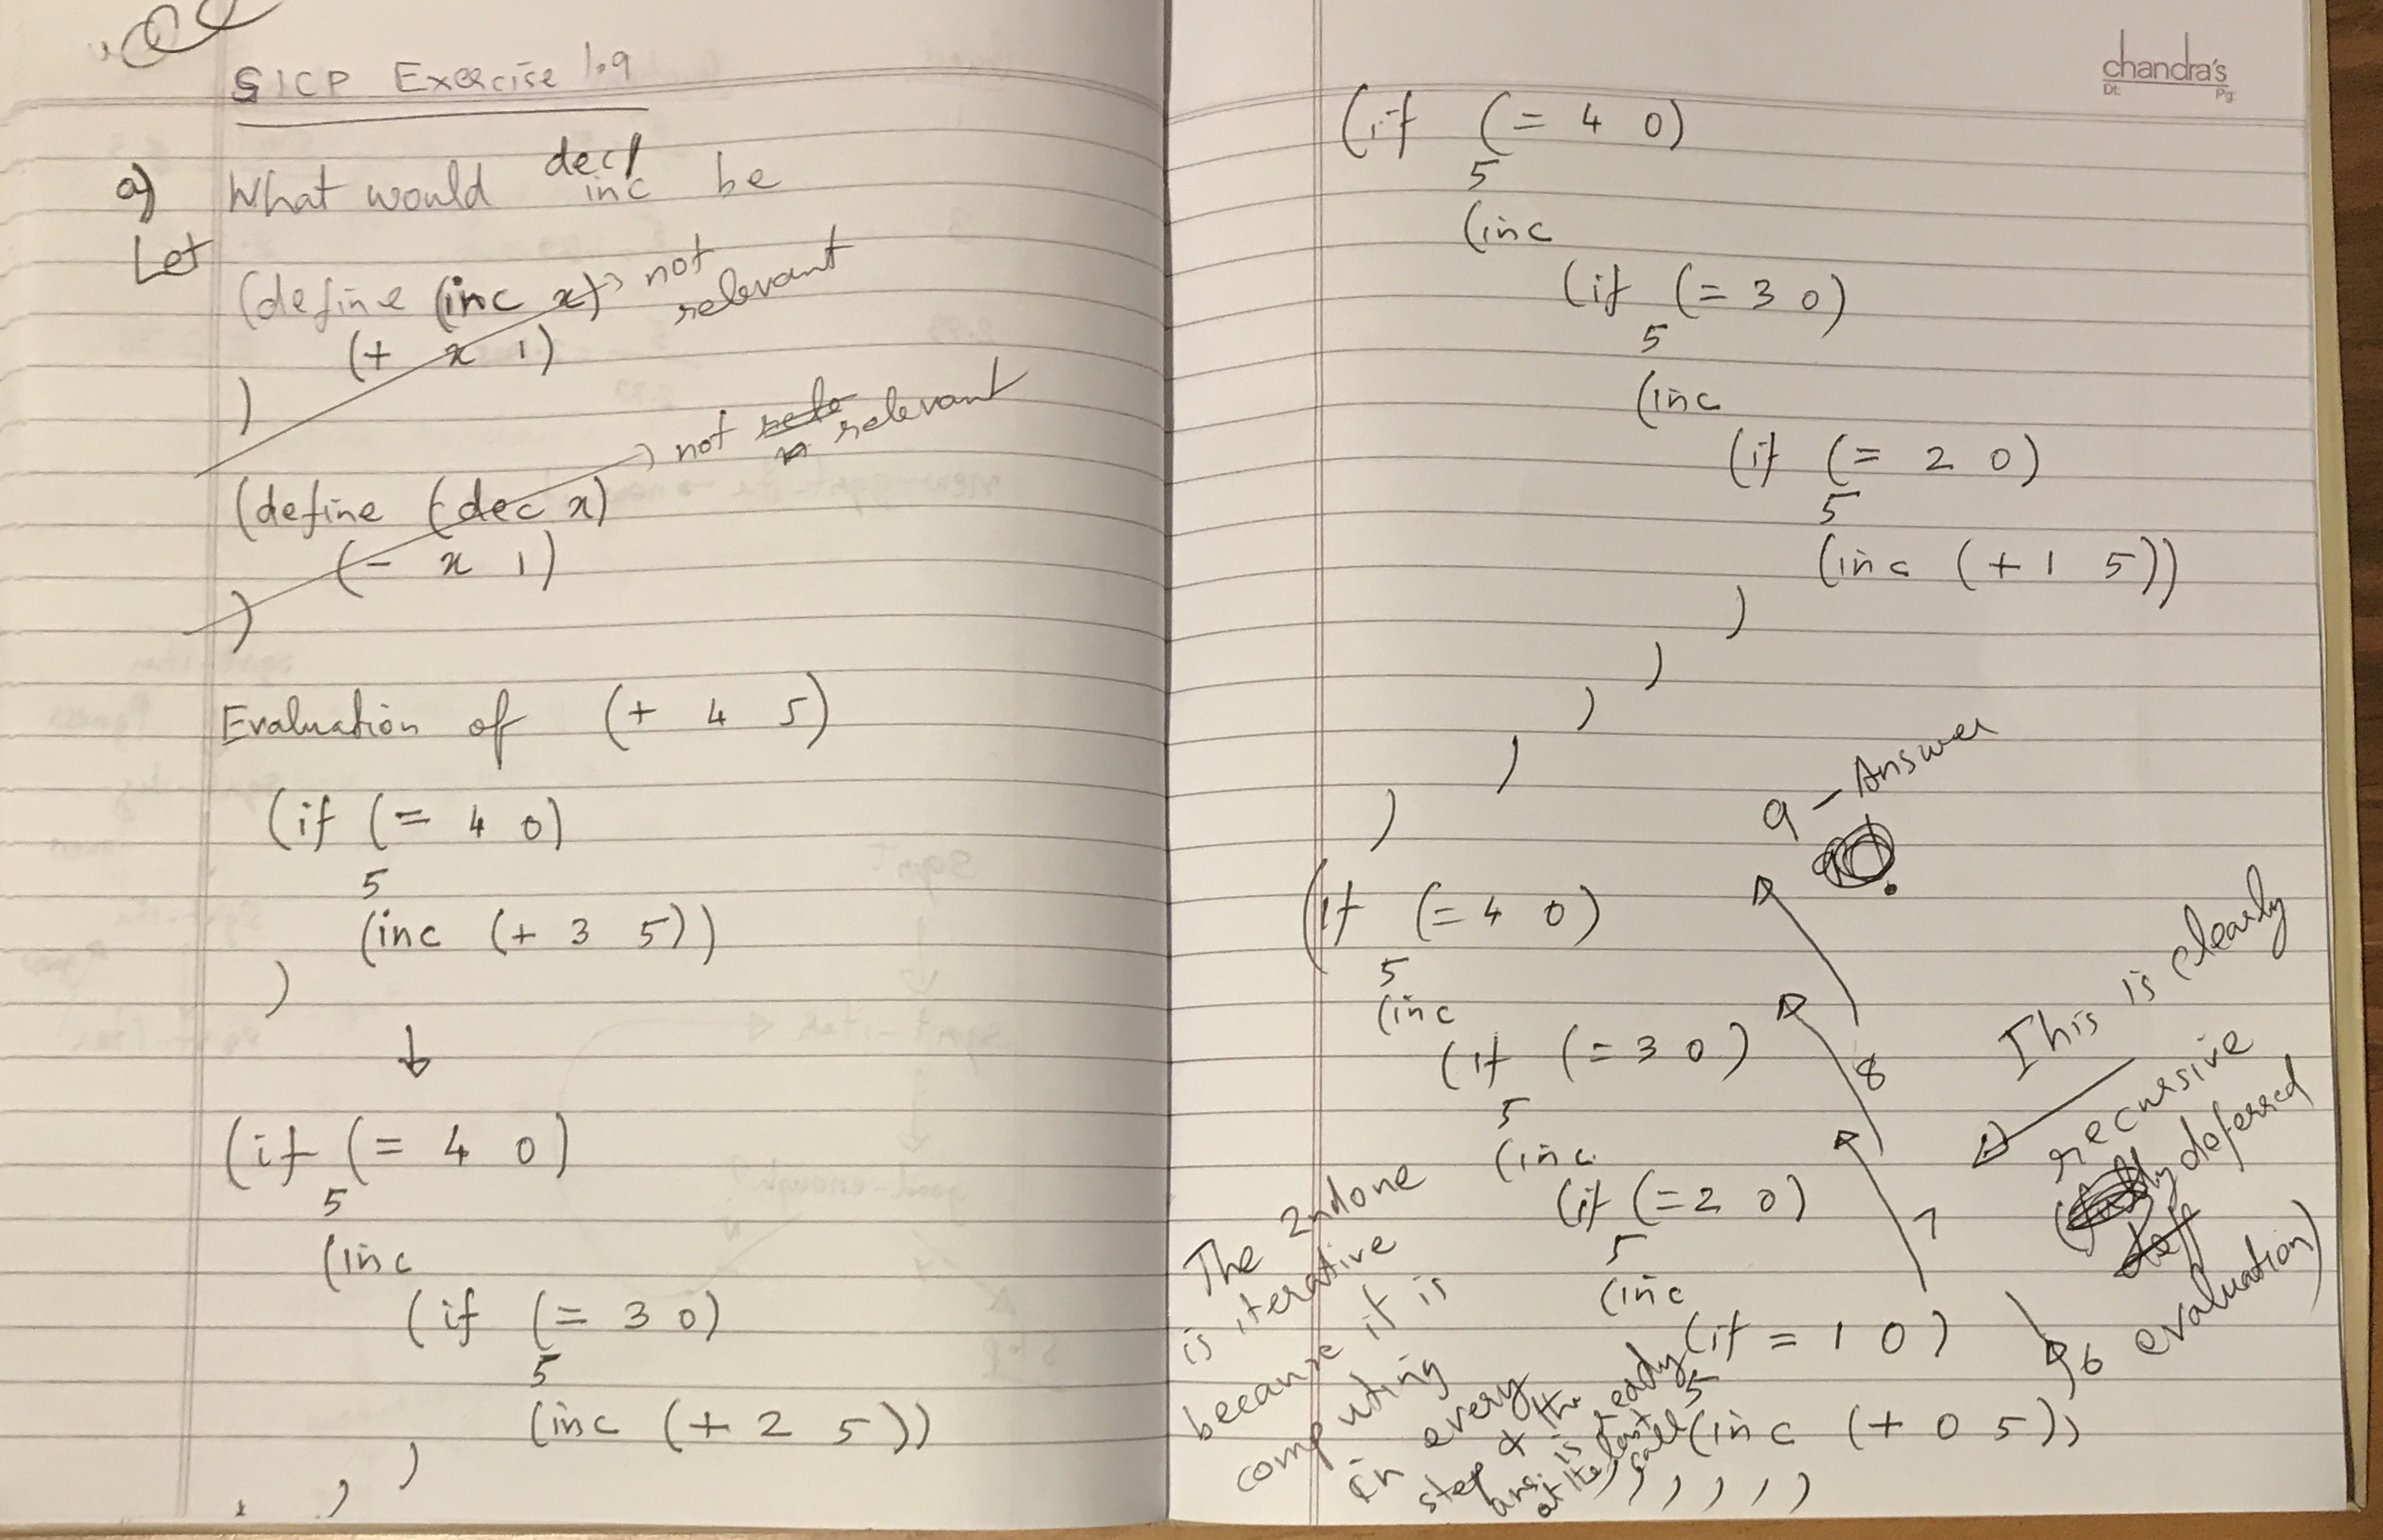 SICP Exercise 1.9
a) What would dec/inc be
Let
(define (inc x) → not
relevant
(+ x 1)
)
(define (dec x) → not relevant
(- x 1)
)
Evaluation of (+ 4 5)
(if (= 4 0)
5
(inc (+ 3 5))
)
↓
(if (= 4 0)
5
(inc
(if (= 3 0)
5
(inc (+ 2 5))
)
)
chandra's
Dt:
Pg:
(if (= 4 0)
5
(inc
(if (= 3 0)
5
(inc
(if (= 2 0)
5
(inc (+ 1 5))
)
)
)
)
)
9 - Answer
(if (= 4 0)
5
(inc
(if (= 3 0)
5
(inc
(if (= 2 0)
5
(inc
(if = 1 0)
5
(inc (+ 0 5))
) ) ) ) ) )
8
7
6
This is clearly
recursive
( deferred
evaluation)
The 2nd one
is iterative
because it is
computing
in every
step & the
ans. is ready
at the last
call